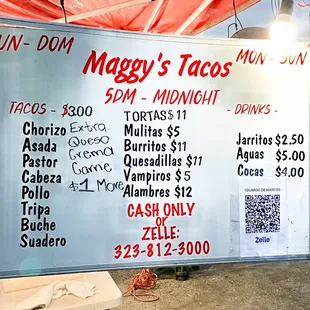 UN - DOM
MON - SUN
Maggy's Tacos
5DM - MIDNIGHT
TACOS - $3.00
Chorizo
Asada
Pastor
Cabeza
Pollo
Tripa
Buche
Suadero
Extra
Queso
Crema
Carne
$1 More
TORTAS $11
Mulitas $5
Burritos $11
Quesadillas $11
Vampiros $5
Alambres $12
CASH ONLY
or
ZELLE:
323-812-3000
- DRINKS -
Jarritos $2.50
Aguas $5.00
Cocas $4.00
EDUARDO DE MARCOS
Zelle